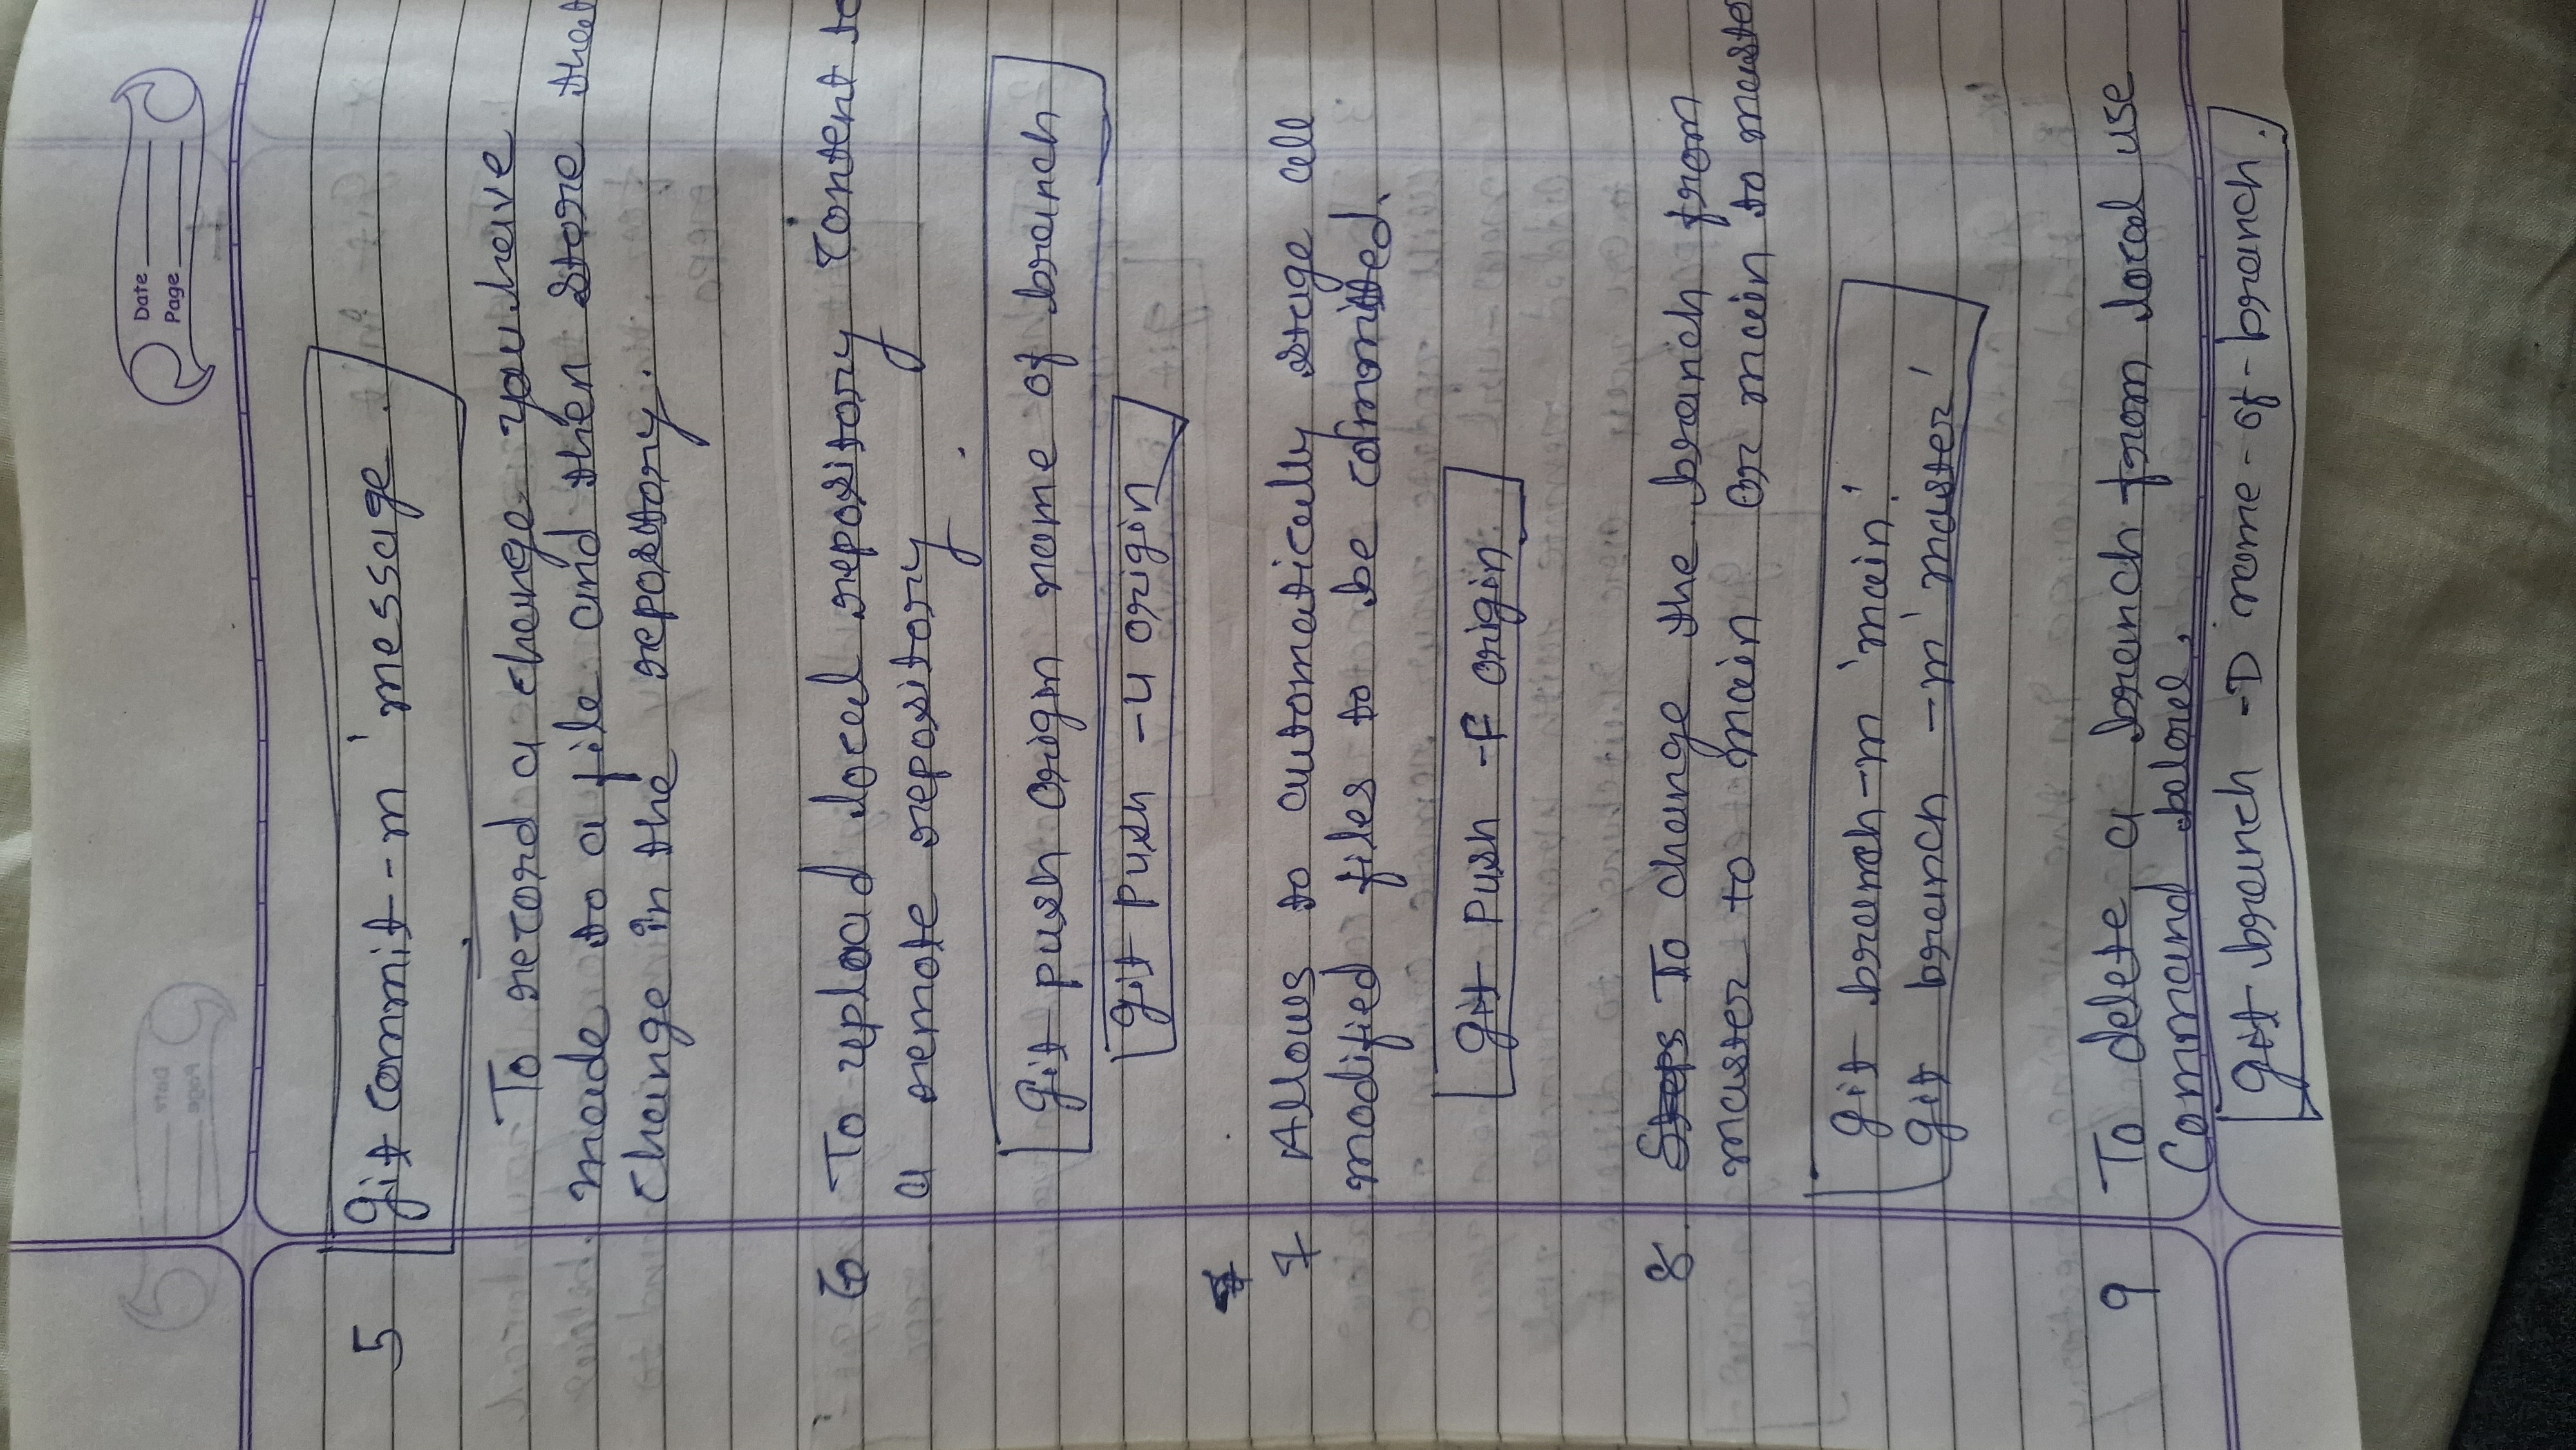 Date
Page
5 git commit -m 'message.
To record a change you have
made to a file and then store that
change in the repository.
6 To upload local repository content to
a remote repository
git push origin name of branch
git push -u origin
7 Allows to automatically stage all
modified files to be committed.
git push -F origin
8. Steps To change the branch from
master to main or main to maste
git branch -m 'main'
git branch -m 'master'
9 To delete a branch from local use
command below.
git branch -D name-of-branch.